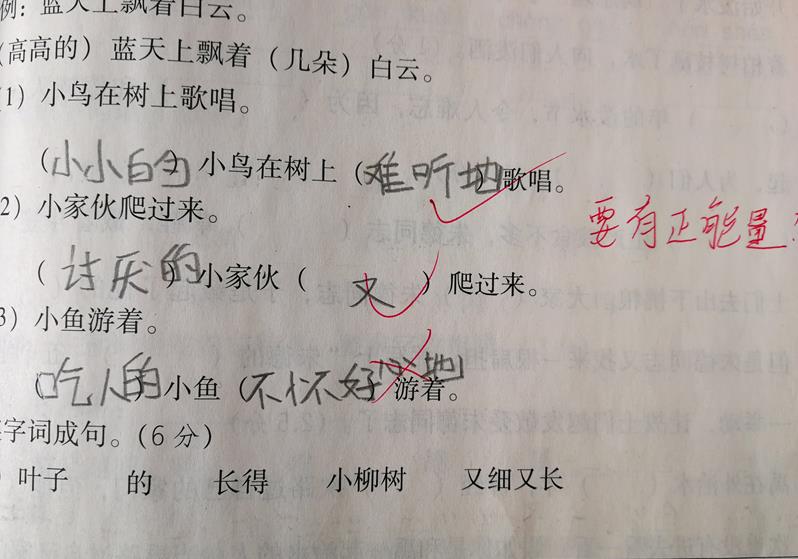 例：蓝天上飘着白云。
(高高的）蓝天上飘着（几朵）白云。
1）小鸟在树上歌唱。
（小小白勺）小鸟在树上（难听地）歌唱。
2）小家伙爬过来。
要有正能量
（讨厌的）小家伙（又）爬过来。
3）小鱼游着。
（吃人的）小鱼（不怀好心地）游着。
字词成句。（6分）
叶子 的 长得 小柳树 又细又长